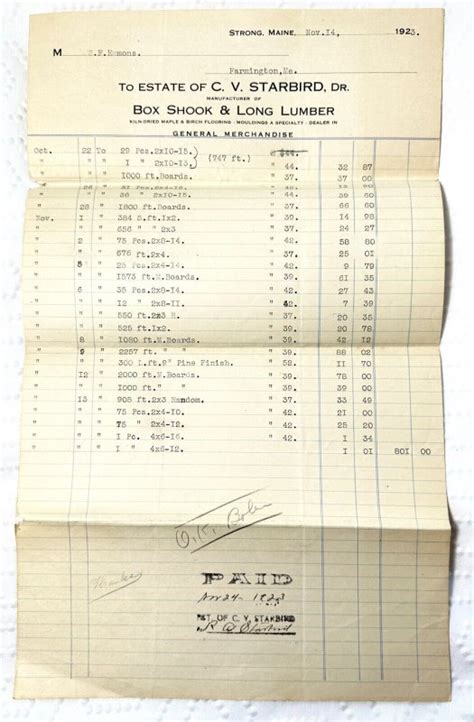 STRONG, MAINE, Nov.14, 1923.
M .F.Emmons.
Farmington,Me.
TO ESTATE OF C. V. STARBIRD, DR.
MANUFACTURER OF
BOX SHOOK & LONG LUMBER
KILN DRIED MAPLE & BIRCH FLOORING - MOULDINGS A SPECIALTY - DEALER IN
GENERAL MERCHANDISE
Oct. 22 To 29 Pcs.2x10-15.) (747 ft.) $44.
" " " 1 " 2x10-13.) 44. 32 87
" " " 1000 ft.Boards. " 37. 37 00
" " " 36 " 2x10-15. " 44. 39 60
" 28 " 1800 ft.Boards. " 37. 66 60
Nov. 1 " 384 S.ft.1x2. " 39. 14 98
" " " 656 " " 2x3 " 37. 24 27
" 2 " 75 Pcs.2x8-14. " 42. 58 80
" " " 676 ft.2x4. " 37. 25 01
" 5 " 25 Pcs.2x4-14. " 42. 9 79
" " " 1573 ft.M.Boards. " 39. 61 35
" 6 " 35 Pcs.2x8-14. " 42. 27 43
" " " 12 " 2x8-11. " 42. 7 38
" " " 550 ft.2x3 H. " 37. 20 35
" " " 525 ft.1x2. " 39. 20 78
" 8 " 1080 ft.M.Boards. " 39. 42 12
" 9 " 2257 ft. " " " 39. 88 02
" " " 300 L.ft.9" Pine Finish. " 52. 11 70
" 12 " 2000 ft.M.Boards. " 39. 78 00
" " " 1000 ft." " " 39. 39 00
" 13 " 905 ft.2x3 Random. " 37. 33 49
" " " 75 Pcs.2x4-10. " 42. 21 00
" " " 75 " 2x4-12. " 42. 25 20
" " " 1 Pc. 4x6-16. " 42. 1 34
" " " 1 " 4x6-12. 1 01 801 00
O.K.
PAID
Nov 24 - 1923
EST. OF C. V. STARBIRD
R A Starbird